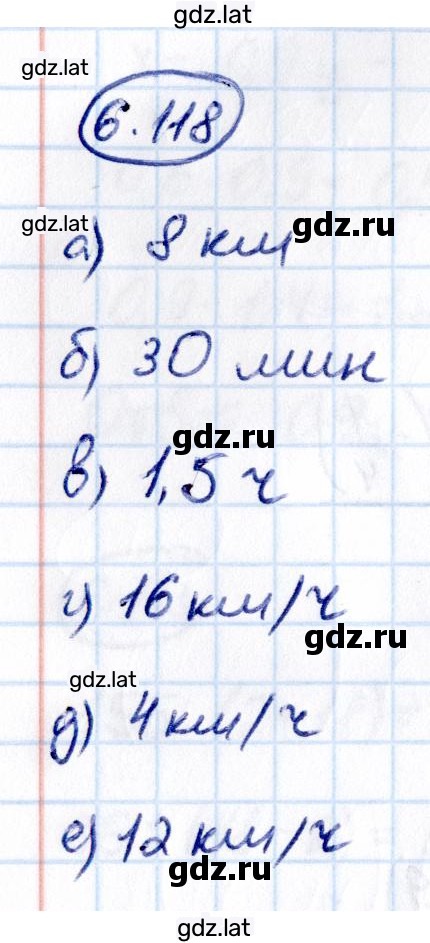 gdz.lat
gdz.lat
6.118
gdz.lat
gdz.ru
а) 8 км
б) 30 мин
gdz.ru
в) 1,5 ч
г) 16 км/ч
gdz.ru
gdz.lat
д) 4 км/ч
е) 12 км/ч
gdz.lat